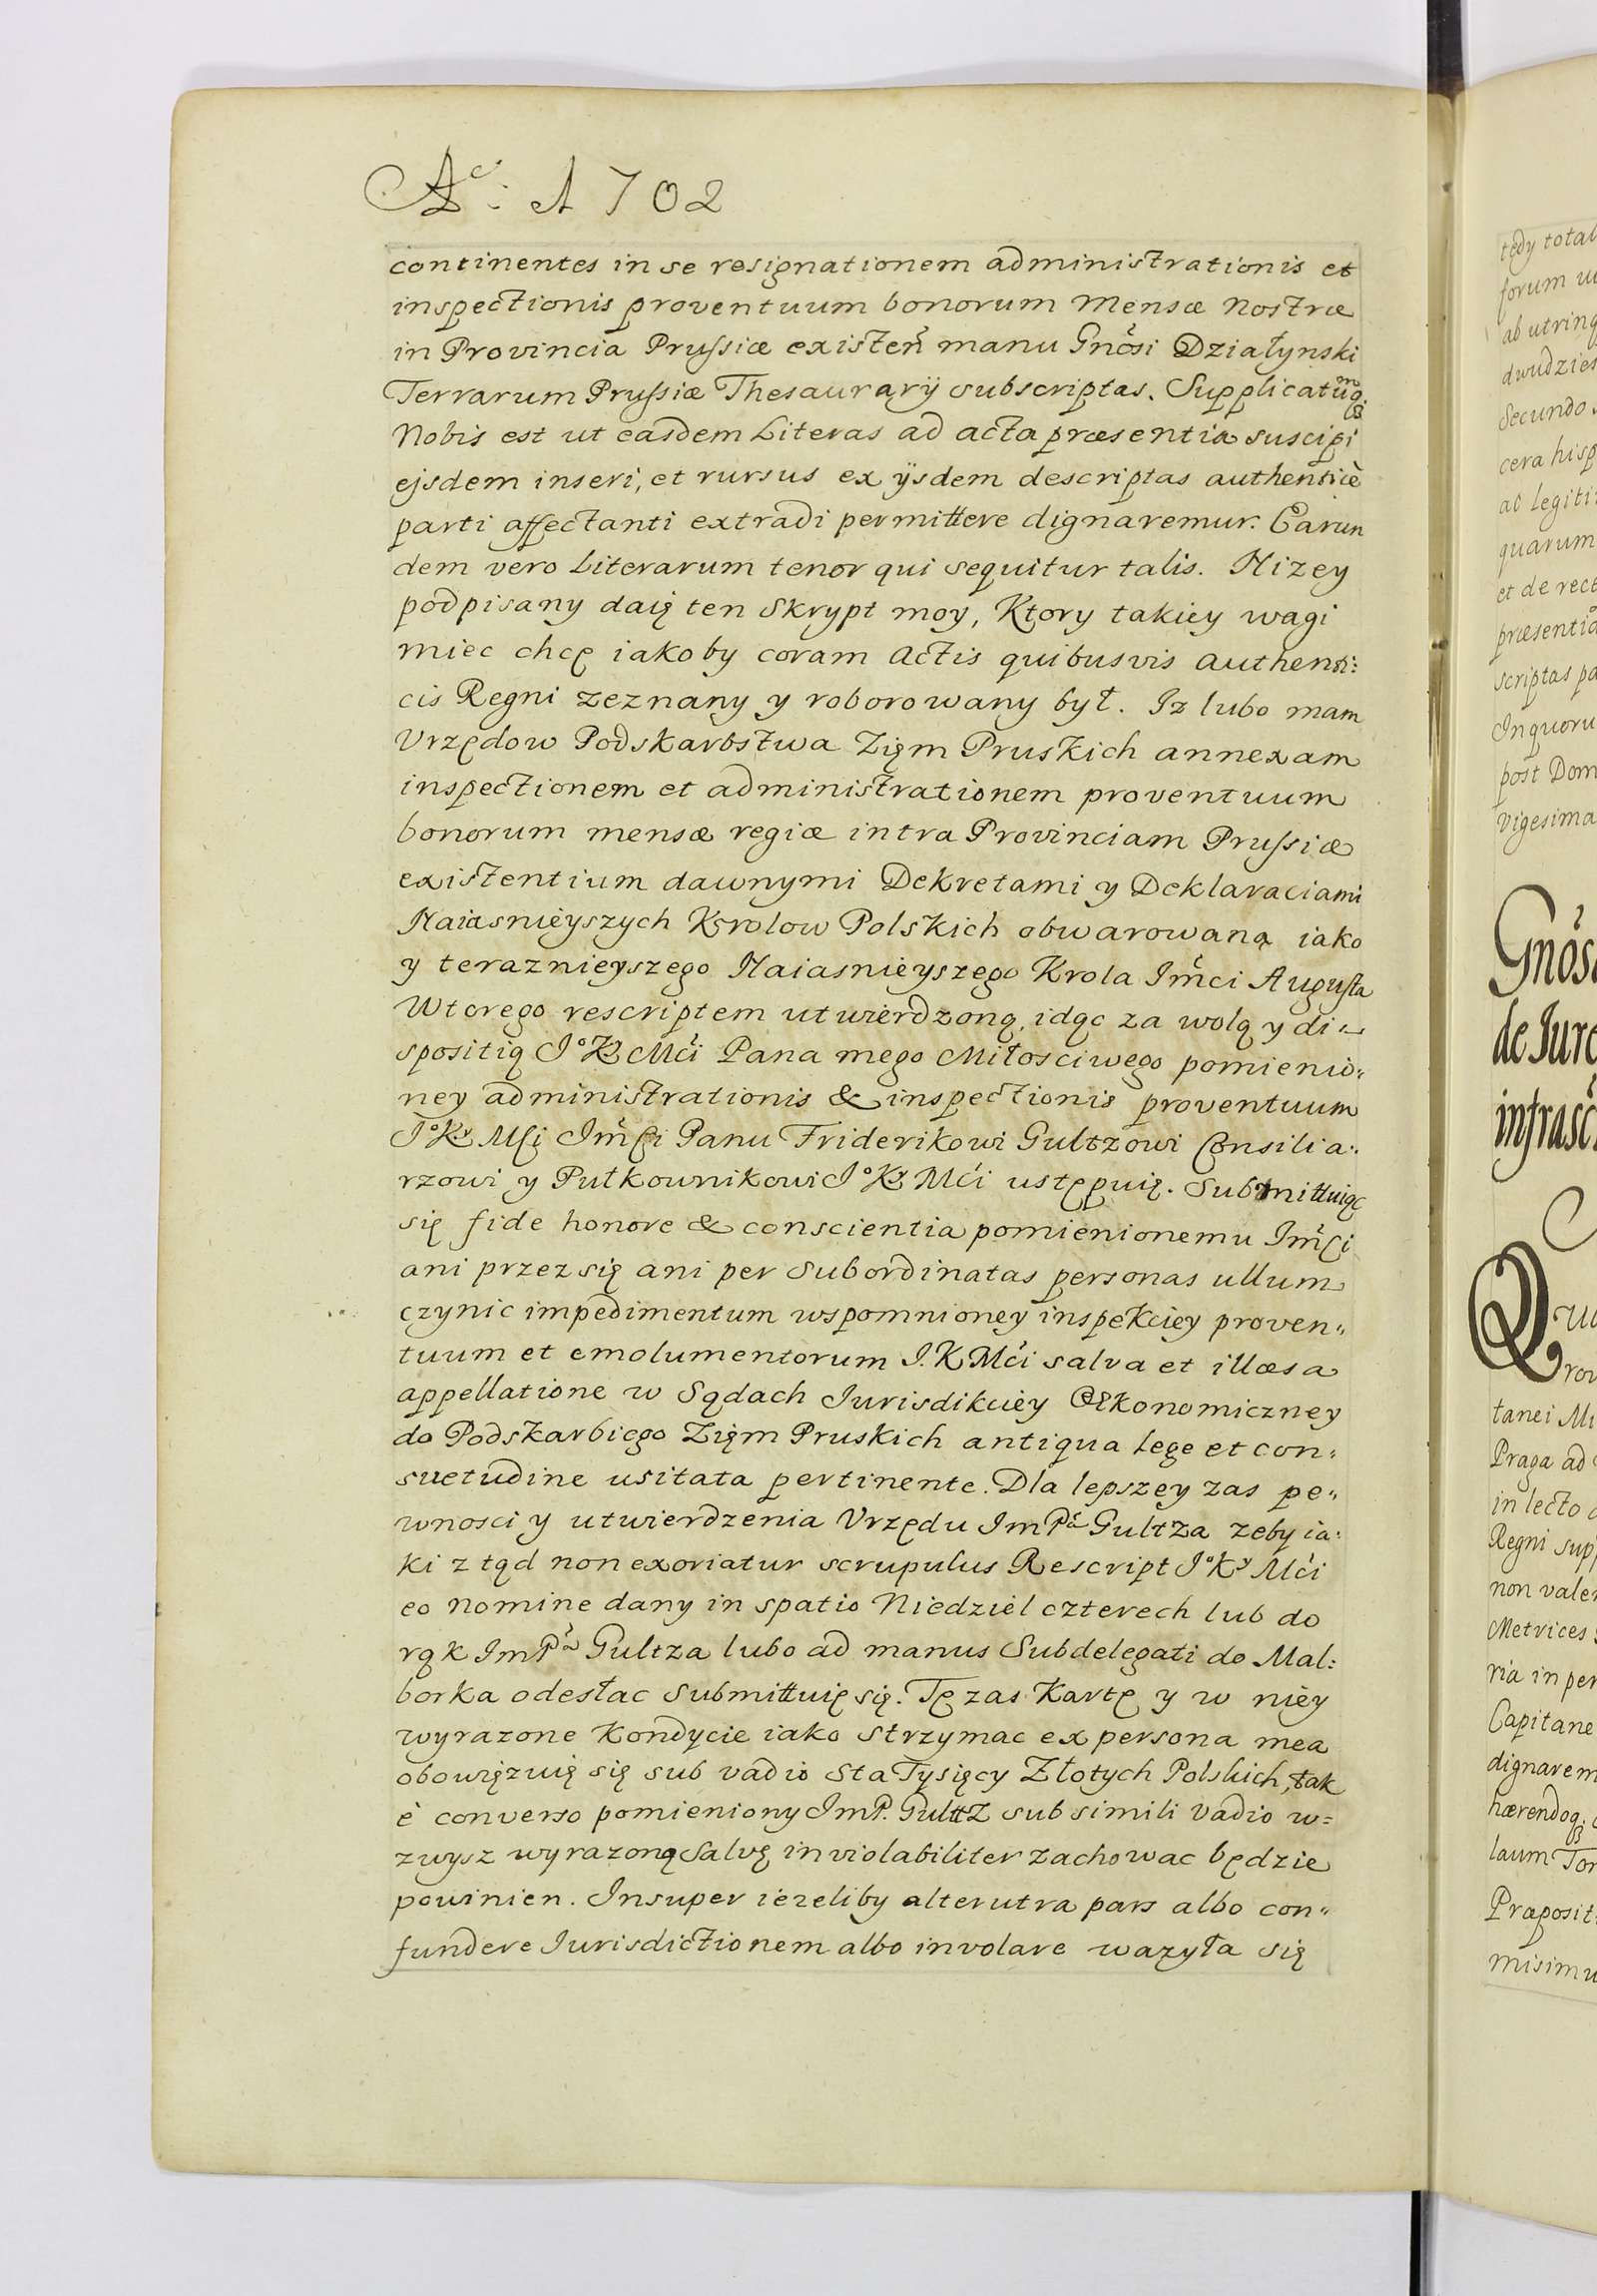 Aº: 1702
continentes in se resignationem administrationis et
inspectionis proventuum bonorum Mensæ Nostræ
in Provincia Prussiæ existen̄ manu Gnōsi Działynski
Terrarum Prussiæ Thesaurarij subscriptas. Supplicatumq
Nobis est ut easdem Literas ad acta præsentia suscipi
ejsdem inseri, et rursus ex ijsdem descriptas authenticè
parti affectanti extradi permittere dignaremur. Earun
dem vero Literarum tenor qui sequitur talis. Nizey
podpisany daię ten Skrypt moy, Ktory takiey wagi
miec chcę iakoby coram Actis quibusvis authenti:
cis Regni zeznany y roborowany był. Iz lubo mam
Vrzędow Podskarbstwa Zięm Pruskich annexam
inspectionem et administrationem proventuum
bonorum mensæ regiæ intra Provinciam Prussiæ
existentium dawnymi Dekretami y Deklaraciami
Naiasnieyszych Krolow Polskich obwarowaną iako
y teraznieyszego Naiasnieyszego Krola Imći Augusta
Wtorego rescriptem utwierdzoną, idąc za wolą y di-
spositią Iº Kʸ Mći Pana mego Miłosciwego pomienio:
ney administrationis & inspectionis proventuum
Iº Kʸ Mści Imści Panu Friderikowi Gultzowi Consilia:
rzowi y Pułkownikowi Iº Kʸ Mći ustępuię. Submittuiąc
się fide honore & conscientia pomienionemu Imści
ani przez się ani per Subordinatas personas ullum
czynic impedimentum wspomnioney inspekciey proven„
tuum et emolumentorum I. K Mći salva et illæsa
appellatione w Sądach Iurisdikciey Œkonomiczney
do Podskarbiego Zięm Pruskich antiqua lege et con„
suetudine usitata pertinente. Dla lepszey zas pe„
wnosci y utwierdzenia Vrzędu Im Pª Gultza zeby ia:
ki z tąd non exoriatur scrupulus Rescript Iº Kʸ Mći
eo nomine dany in spatio Niedziel czterech lub do
rąk Im Pª Gultza lubo ad manus Subdelegati do Mal:
borka odesłac submittuię się. Tę zas Kartę y w niey
wyrazone Kondycie iako strzymac ex persona mea
obowięzuię się sub vadio Sta Tysięcy Złotych Polskich, tak
è converso pomieniony Im P. Gulttz sub simili vadio w=
zwysz wyrazoną Salvę inviolabiliter zachowac będzie
powinien. Insuper iezeliby alterutra pars albo con„
fundere Iurisdictionem albo involare wazyła się
tędy total
forum
ab utrinq
dwudzies
Secundo
cera hisp
ac legiti
quarum
et de rect
præsentia
scriptas pa
In quoru
post Dom
vigesima
Gnōs
de Iure
infrasc
tanei
Praga ad
in lecto
Regni sup
non vale
Metrices
ria in per
Capitane
dignarem
hærendoq
laum Tor
Præposit
misimu